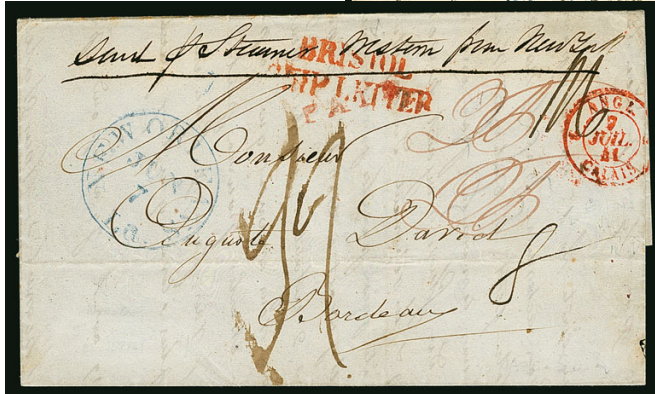 Send p Steamer Western from New York
BRISTOL
SHIP LETTER
ANGL.
7
JUIL.
41
CALAIS
NEW ORLEANS
JUN
7
LA.
Monsieur
Auguste David
Bordeaux